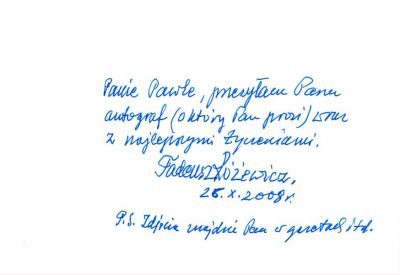 Panie Pawle, przesyłam Panu
autograf (o który Pan prosi) wraz
z najlepszymi życzeniami.
Tadeusz Różewicz,
26.X.2008 r.
P.S. Zdjęcia znajdzie Pan w gazetach itd.